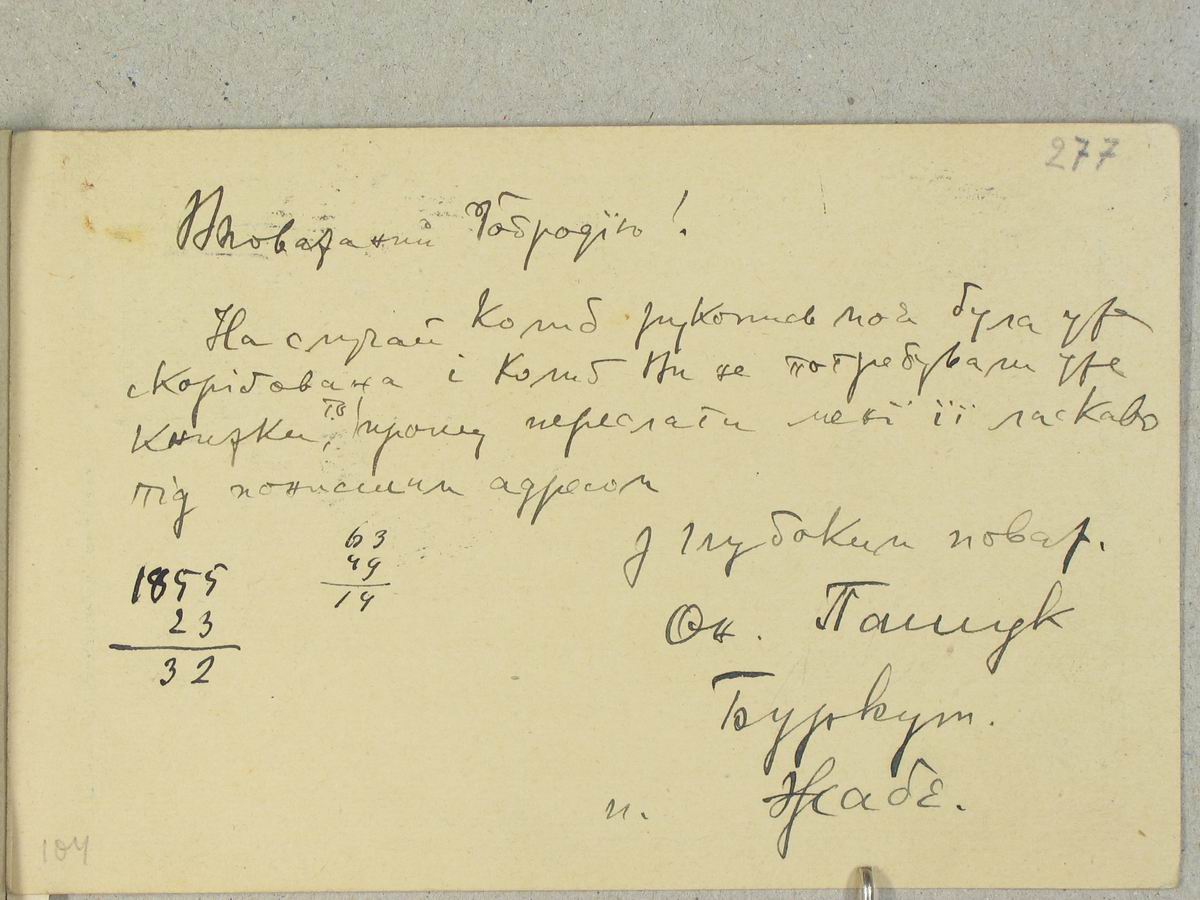 277
Вповажаний Добродїю!
На случай колиб рукопись моя була уже
скорібована і колиб Ви не потребували уже
книжки, то прошу переслати менї її ласкаво
під понисшим адресом
з глубоким поваж.
Ок. Пашчук
Буркут.
п. Жабє.
63
49
14
1855
23
32
104